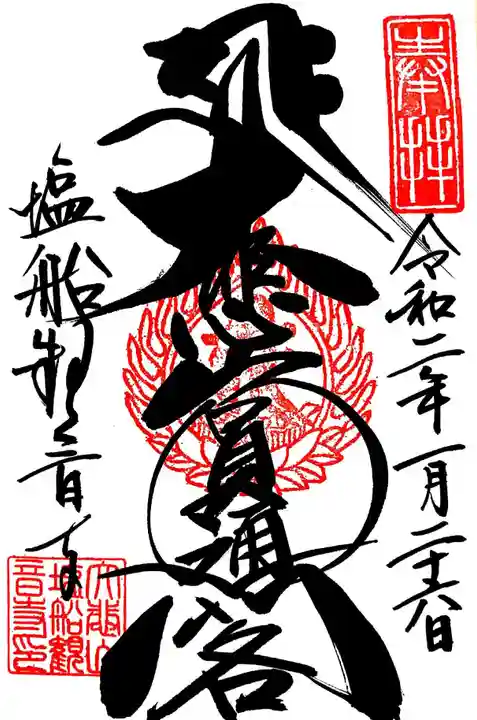 奉拝
令和二年一月二十六日
大悲圓通閣
塩船観音寺
大悲山
塩船観
音寺印